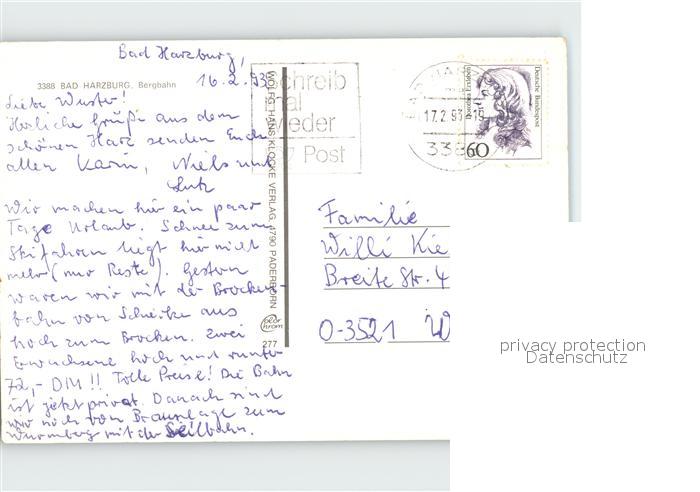 Bad Harzburg,
16.2.93
3388 BAD HARZBURG, Bergbahn
Liebe Wuster!
Herzliche Grüße aus dem
schönen Harz senden Euch
allen Karin, Niels und
Lutz
Wir machen hier ein paar
Tage Urlaub. Schnee zum
Skifahren liegt hier nicht
mehr (nur Reste). Gestern
waren wir mit der Brocken-
bahn von Schierke aus
hoch zum Brocken. Zwei
Erwachsene hoch und runter
72,- DM!! Tolle Preise! Die Bahn
ist jetzt privat. Danach sind
wir noch von Braunlage zum
Wurmberg mit der Seilbahn.
WOLFG. HANS KLOCKE VERLAG, 4790 PADERBORN
color
chrom
277
Schreib
mal
wieder
Post
17.2.93-19
338
Deutsche Bundespost
60
Familie
Willi Kie
Breite Str. 4
O-3521 W
privacy protection
Datenschutz